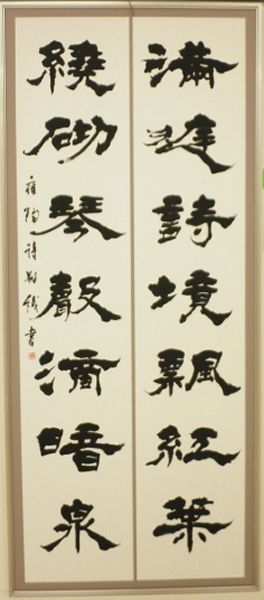 滿庭詩境飄紅葉
繞砌琴聲滴暗泉
雍陶詩 書